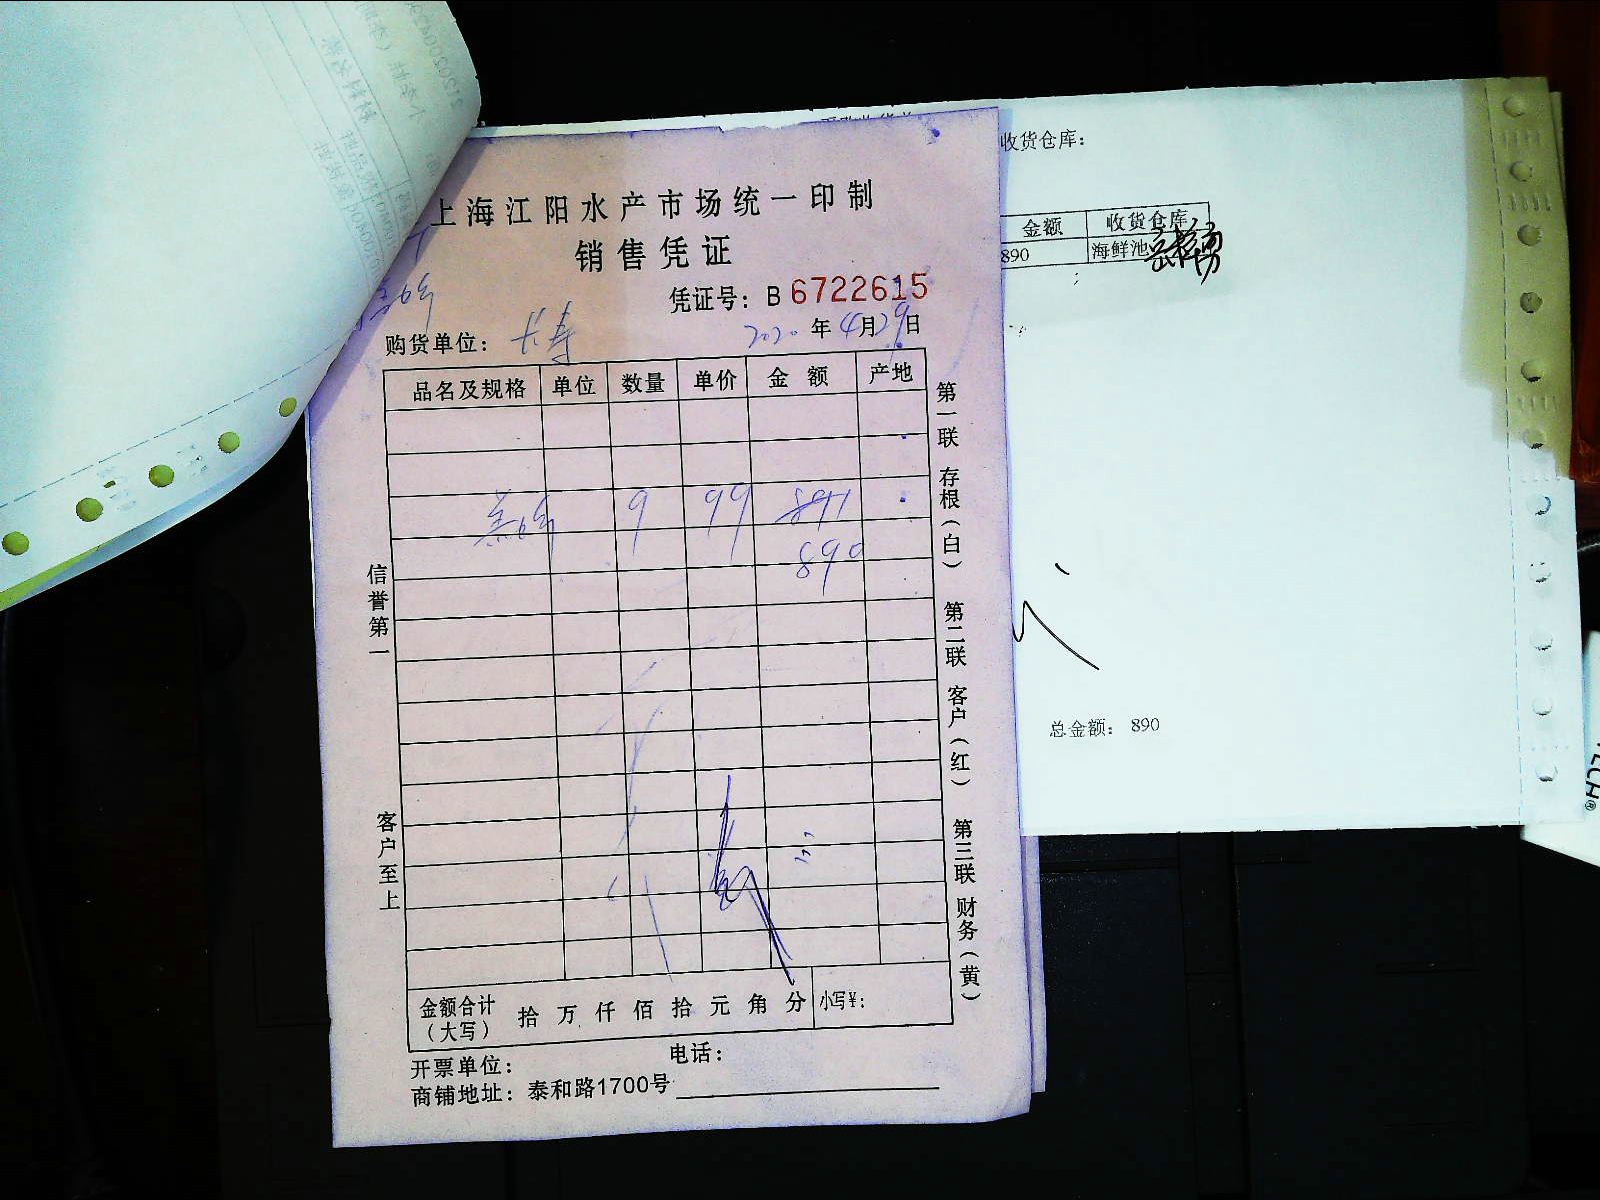 上海江阳水产市场统一印制
销售凭证
凭证号：B 6722615
购货单位：长寿 2020年4月29日
品名及规格 单位 数量 单价 金额 产地
9 99 891
890
信誉第一
客户至上
第一联 存根（白） 第二联 客户（红） 第三联 财务（黄）
金额合计（大写） 拾万仟佰拾元角分 小写¥：
开票单位： 电话：
商铺地址：泰和路1700号
收货仓库：
金额 收货仓库
890 海鲜池
总金额： 890